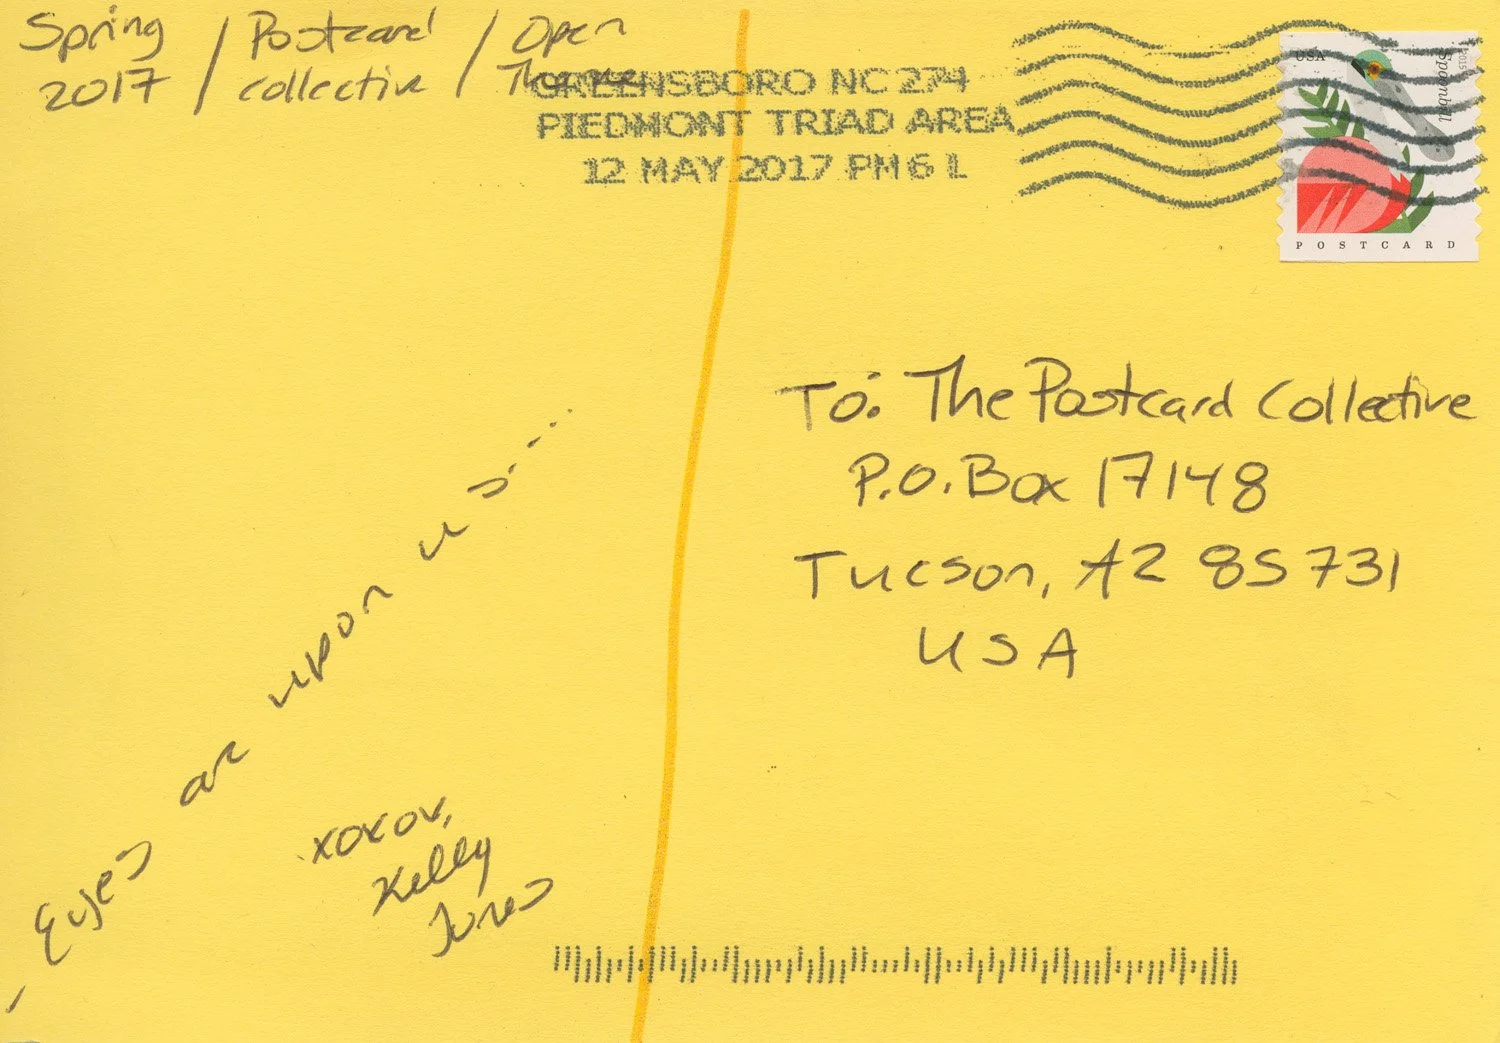 Spring / Postcard / Open
2017 / collective / Theme
GREENSBORO NC 274
PIEDMONT TRIAD AREA
12 MAY 2017 PM 6 L
USA
Spoonbill
2015
POSTCARD
To: The Postcard Collective
P.O. Box 17148
Tucson, AZ 85731
USA
Eyes are upon us...
xoxox,
Kelly
Jones